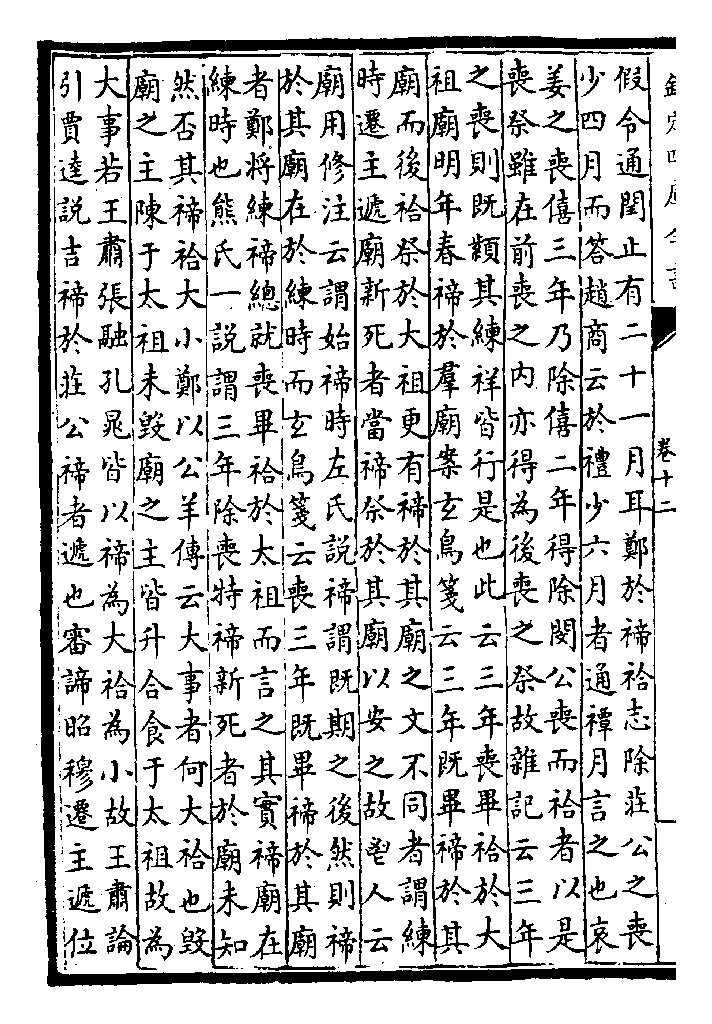 欽定四庫全書
卷十二
假令通閏止有二十一月耳鄭於禘祫志除莊公之喪
少四月而答趙商云於禮少六月者通禫月言之也哀
姜之喪僖三年乃除僖二年得除閔公喪而祫者以是
喪祭雖在前喪之内亦得為後喪之祭故雜記云三年
之喪則既顈其練祥皆行是也此云三年喪畢祫於大
祖廟明年春禘於羣廟案玄鳥箋云三年既畢禘於其
廟而後祫祭於大祖更有禘於其廟之文不同者謂練
時遷主遞廟新死者當禘祭於其廟以安之故鬯人云
廟用修注云謂始禘時左氏説禘謂既期之後然則禘
於其廟在於練時而玄鳥箋云喪三年既畢禘於其廟
者鄭將練禘總就喪畢祫於太祖而言之其實禘廟在
練時也熊氏一説謂三年除喪特禘新死者於廟未知
然否其禘祫大小鄭以公羊傳云大事者何大祫也毀
廟之主陳于太祖未毀廟之主皆升合食于太祖故為
大事若王肅張融孔晁皆以禘為大祫為小故王肅論
引賈逵説吉禘於莊公禘者遞也審諦昭穆遷主遞位